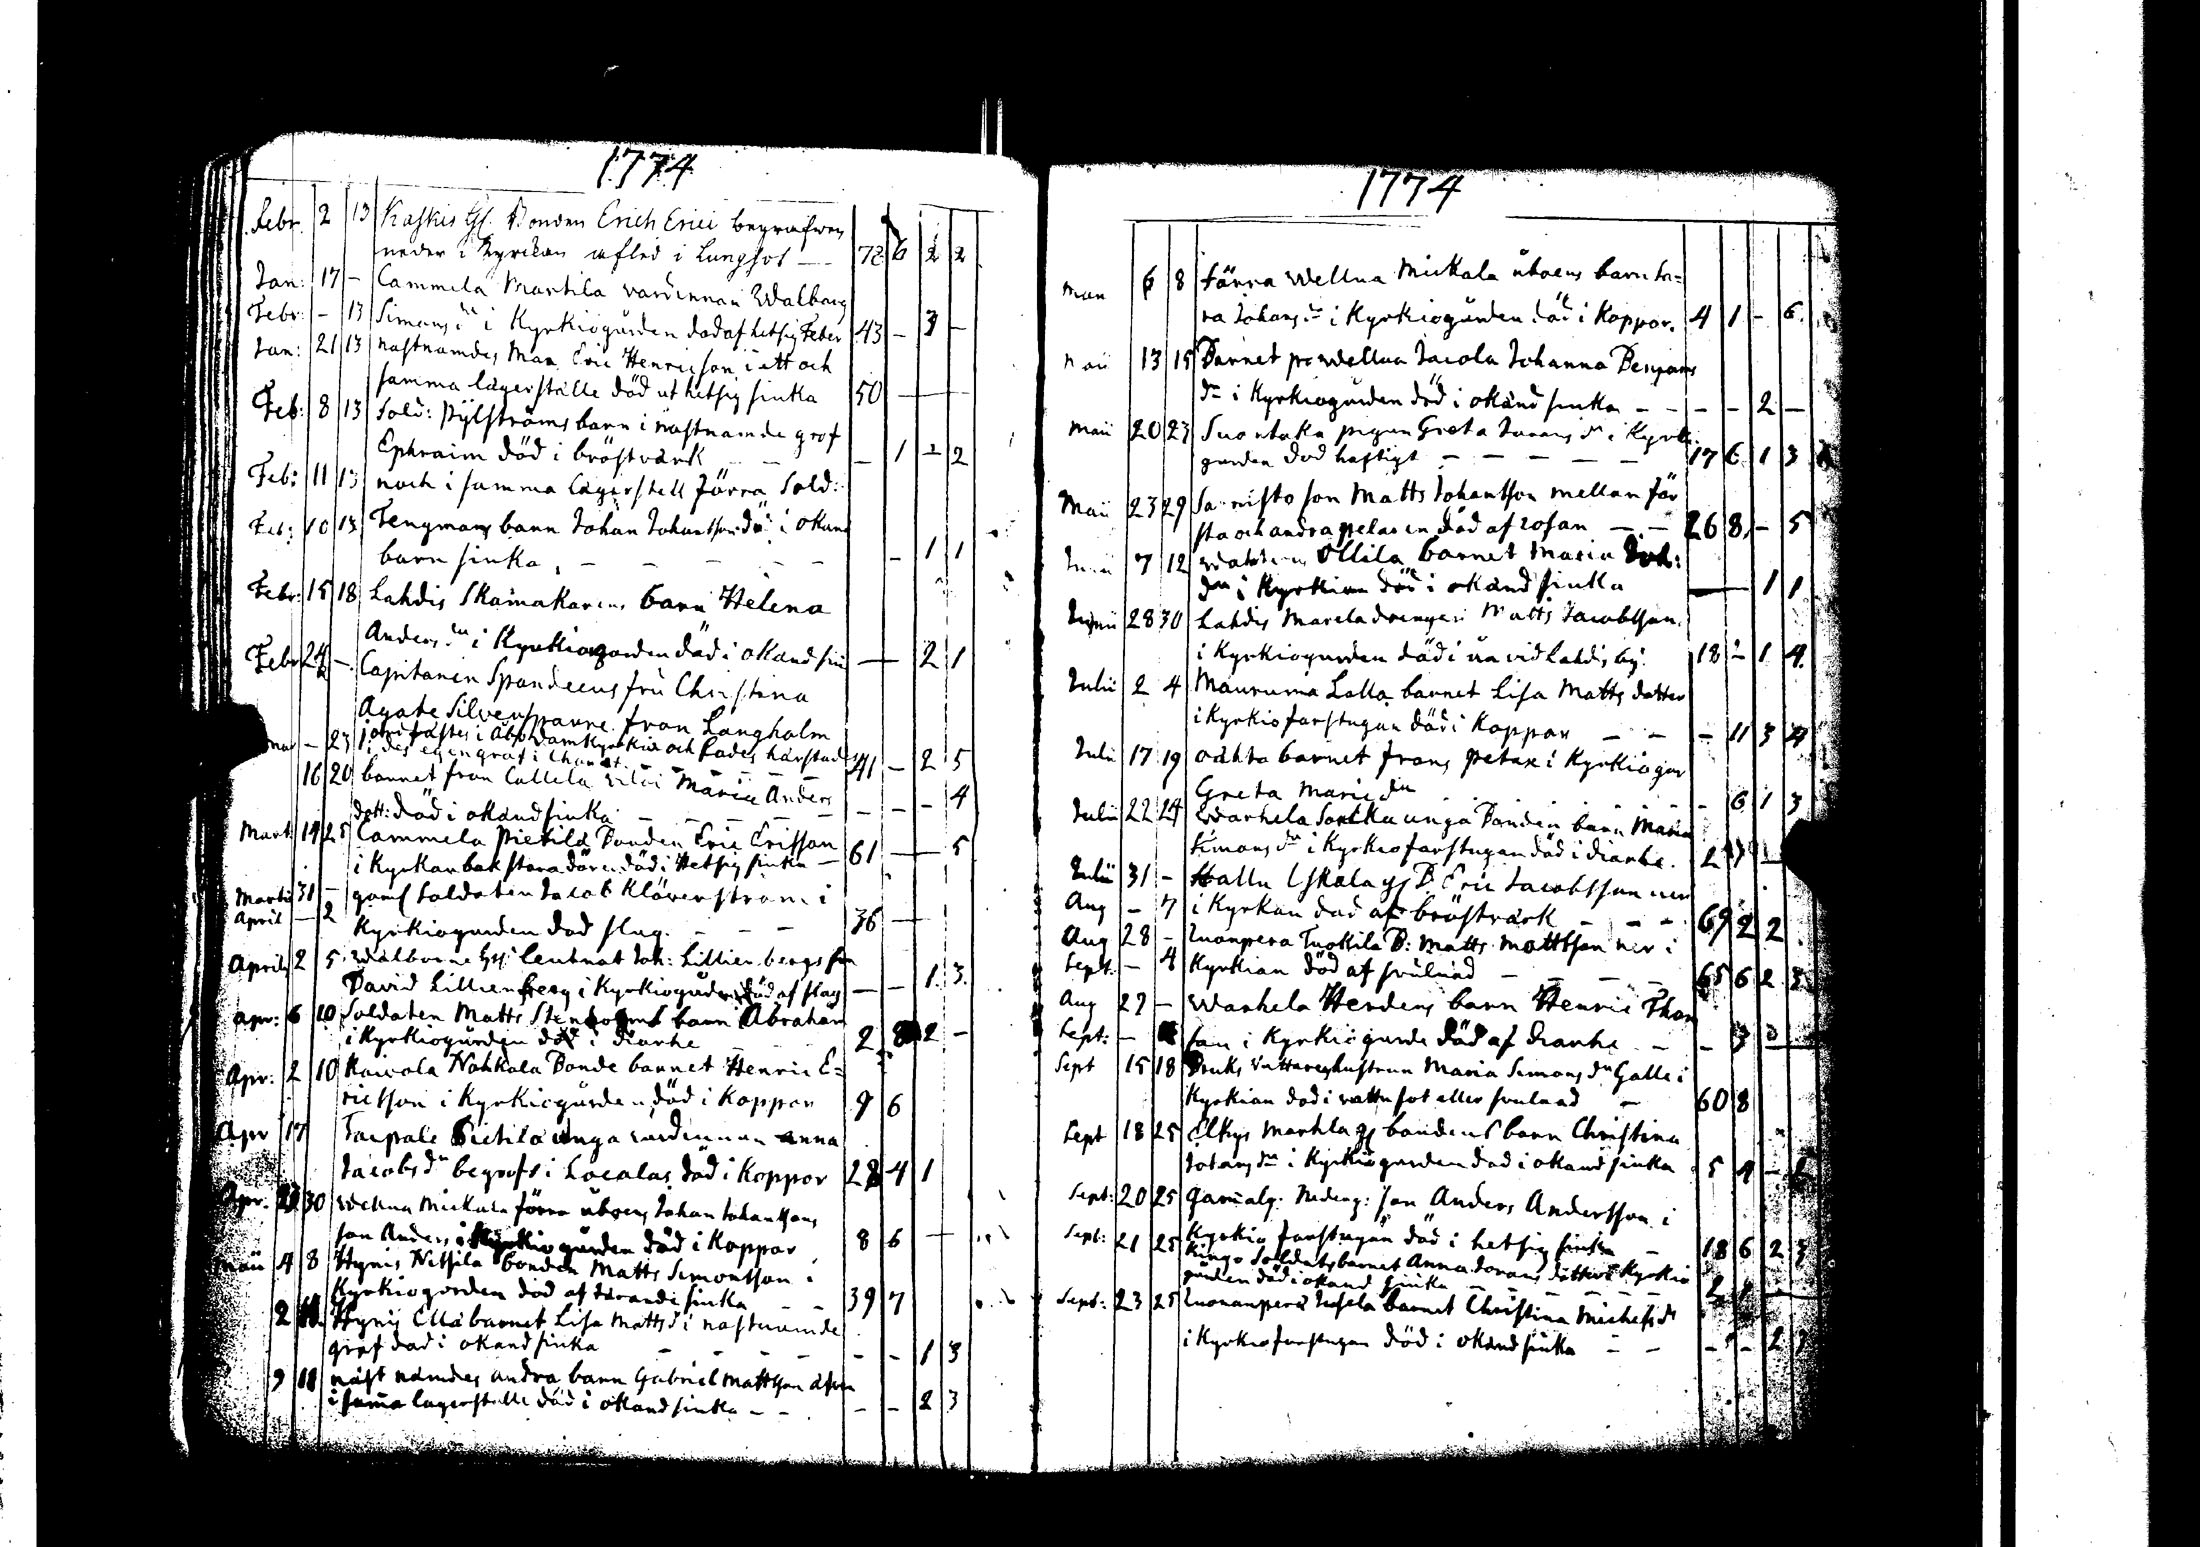 1774
Febr. 2 13 Kaskis Gl. Bonden Erich Erici begrafwen
neder i Kyrckan afled i Lungsot — 72 6 2 2
Jan: 17 - Cammela Martila värdinnan Walborg
Febr: - 13 Simons dr i Kyrkiogården död af hetsig Feber 43 - 3 -
Jan: 21 13 nästnämdes Man Eric Henricson i ett och
samma lägerställe död ut hetsig siuka 50 — —
Feb: 8 13 Sold: Pylströms barn i nästnämde graf
Ephraim död i bröstvärk — — - 1 2 2
Feb: 11 13 noch i samma lägerstell Förra Sold:
Feb: 10 13 Tengmans barn Johan Johansson död i okänd
barn siuka, - - - - - 1 1
Febr: 15 18 Lahdis Skämakarens barn Helena
Anders dr i Kyrkiogården död i okänd siu — 2 1
Febr 24 -. Capitanen Spandecus fru Christina
Agate Silversparre från Långholm
mar - 23 jordfästes i Åbo Domkyrkia och lades härstades
i des egen graf i Choret. - - - 41 - 2 5
16 20 barnet från Callela Maria Anders
dott: död i okänd siuka - - - - - - 4
Mart 14 25 Cammela Pietilä Bonden Eric Ersson
i Kyrkan bak stora dören död i Hetsig siuka — 61 — 5
Martii 31 - gaml Soldaten Jacob Klöverström i
April - 2 Kyrkiogården död slag. - - - 36 —
Aprily 2 5 Walborne Hss leutnat Joh: Lillienbergs son
David Lillienberg i Kyrkiogården död af slag — - 1 3
apr: 6 10 Soldaten Matts Stenholms barn Abraham
i Kyrkiogården död i diarhe 2 8 2 -
Apr: 2 10 Kaivola Nohkala Bonde barnet Henric E=
ricsson i Kyrkiogården, död i Koppor 9 6
Apr 17 Taipale Pietilä unga värdinnan Anna
Jacobs dr begrofs i Localax död i Koppor 28 4 1
Apr. 30 Wellua Mickala förra åboens Johan Johanssons
son Anders i Kyrkiogården död i Koppor 8 6 —
Maii 4 8 Hynis Nissilä bonden Matts Simonsson i
Kyrkiogården död af tärande siuka - - 39 7
2 11 Hynis Ella barnet Lisa Matts d i nästnämde
graf död i okänd siuka - - - - - 1 3
9 11 näst nämdes andra barn Gabriel Mattson äfven
i sama lägerställe död i okänd siuka - - - - 2 3
1774
Maii 6 8 Förra Wellua Mickala åboens barn Sa=
ra Johans dr i Kyrkiogården död i Koppor. 4 1 - 6
Maii 13 15 Barnet på Wellua Jacola Johanna Benjams
dr i Kyrkiogården död i okänd siuka - - - - 2 -
Maii 20 23 Suontaka pigan Greta Johans dr i Kyrkio
gården död hastigt - - - - - 17 6 1 3
Maii 23 29 Sarnisto son Matts Johansson mellan för
sta och andra pelaren död af rosan - - 26 8 - 5
Junii 7 12 Ollila barnet Maria Joh:
dr i Kyrkian död i okänd siuka — 1 1
Junii 28 30 Lahdis Marcla drengen Matts Jacobsson.
i Kyrkiogården död i åa vid Lahdis by. 18 - 1 4.
Julii 2 4 Mauruma Lalla barnet Lisa Matts dotter
i Kyrkiofarstugan död i Koppor - - - 11 3 4
Julii 17 19 oächta barnet från Petax i Kyrkiogår
Greta Maria dr - 6 1 3
Julii 22 24 Warhela Sorkka unga Bonden barn Maria
Simons dr i Kyrkiofarstugan död i diarhe. 2
Julii 31 - Hallu Uskala gl B. Eric Jacobsson ner
Aug - 7 i Kyrkan död af bröstvärk - - - 69 2 2
Aug 28 - Luonpera Tuokila B: Matts Mattsson ner i
Sept: - 4 Kyrkian död af svulnad - - - 65 6 2 3
Aug 29 - Warhela Herdens barn Henric Thom
Sept: - son i Kyrkiogårde död af diarhe - - 3
Sept 15 18 Bruks hustrun Maria Simons dr Galle i
Kyrkian död i vattusot eller svulnad - 60 8
Sept 18 25 Elkys Markla gl bondens barn Christina
Johans dr i Kyrkiogården död i okänd siuka 5 4 -
Sept: 20 25 Gamalg: Nederg: son Anders Andersson i
Kyrkio farstugan död i hetsig siuka - 18 6 2 3
Sept: 21 25 Kingo Soldats barnet Anna Jorans dotter i Kyrkio
gården död i okänd siuka - - - - - 2 1
Sept: 23 25 Luonanpera Jussila barnet Christina Michels dr
i Kyrkiofarstugan död i okänd siuka - - - - 2 3